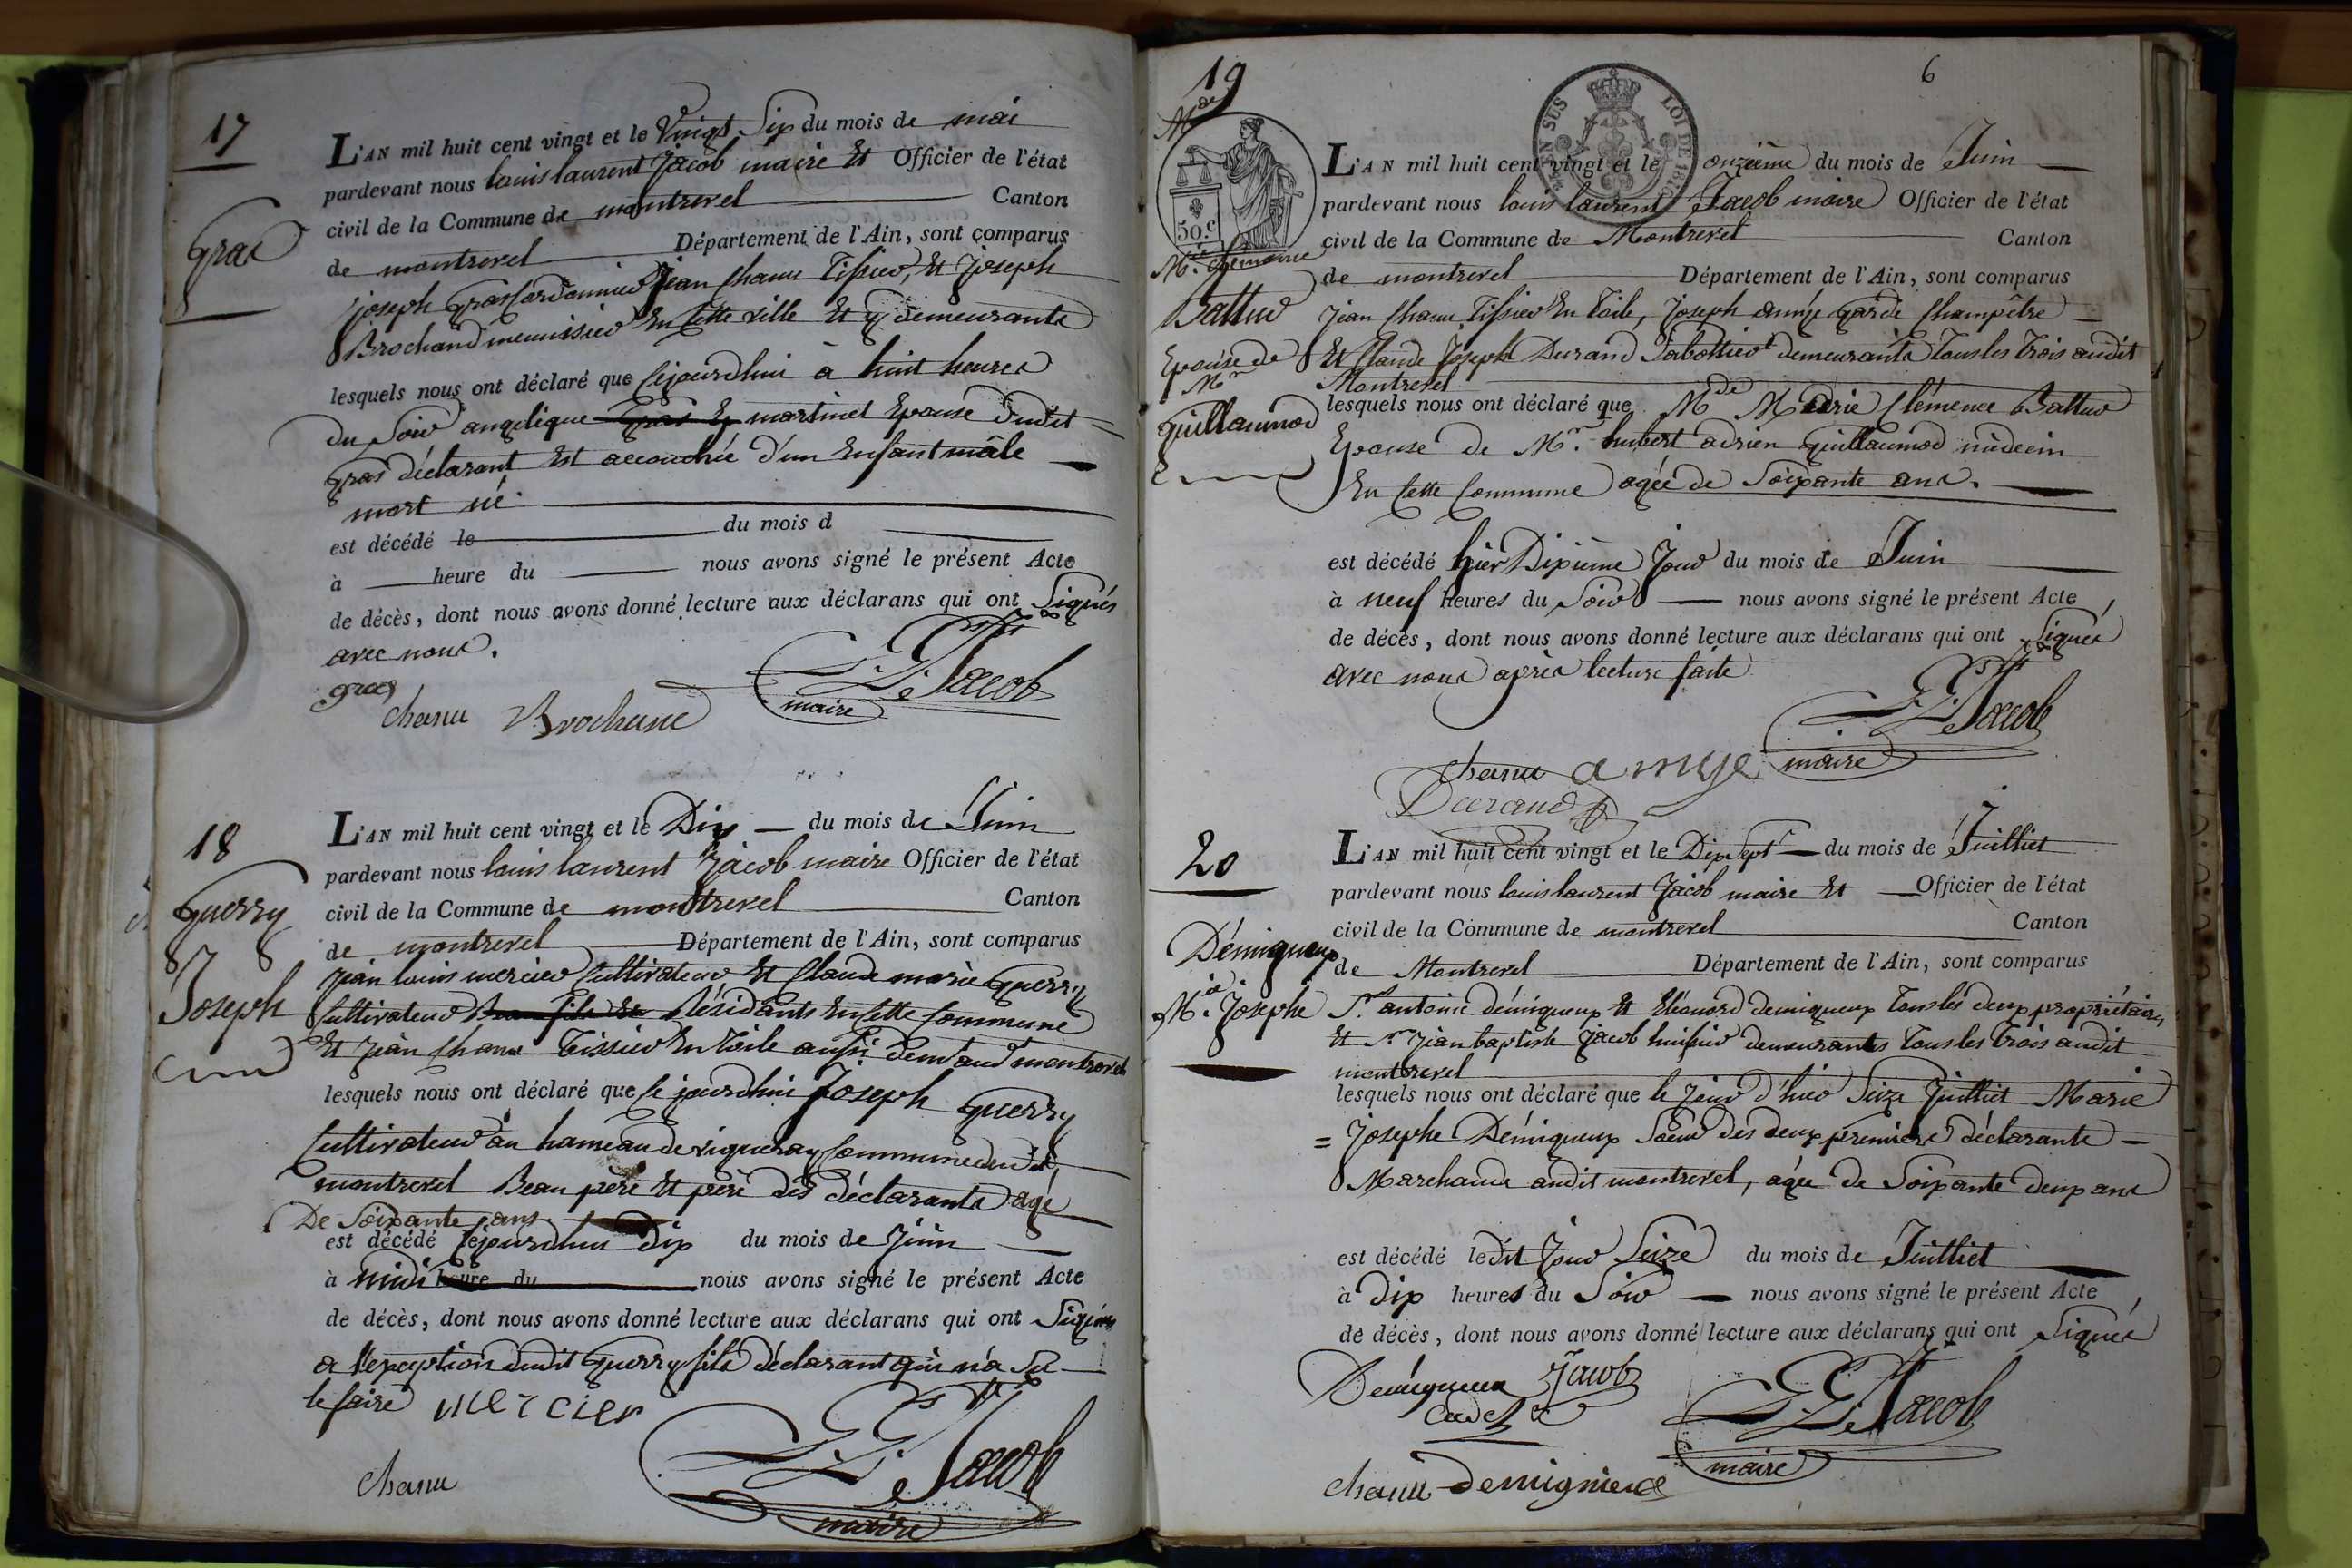 17
Gras
L'AN mil huit cent vingt et le Vingt Six du mois de mai
pardevant nous louis laurent Jacob maire Et Officier de l'état
civil de la Commune de montrevel Canton
de montrevel Département de l'Ain, sont comparus
joseph Gras Cordonnier jean Chanu Tissier, Et Joseph
Brochand menuisier En Cette ville Et y demeurants
lesquels nous ont déclaré que Cejourdhui à huit heures
du Soir angelique Gras Ep martinet Epouse dudit =
Gras déclarant Est accouchée d'un Enfant mâle
mort né.
est décédé le du mois d
à heure du nous avons signé le présent Acte
de décès, dont nous avons donné lecture aux déclarans qui ont Signés
avec nous.
gras
chanu Brochand L. L. Jacob
maire
18
Guerry
Joseph
L'AN mil huit cent vingt et le Dix du mois de Juin
pardevant nous louis laurent Jacob maire Officier de l'état
civil de la Commune de montrevel Canton
de montrevel Département de l'Ain, sont comparus
jean louis mercier Cultivateur Et Claude marie Guerry
Cultivateur Beau fils Et Résidants En Cette Commune
Et jean Chanu Tissier En Toile aussi demt audt montrevel
lesquels nous ont déclaré que Ce jourdhui Joseph Guerry
Cultivateur au hameau de vigneray Commune dudit
montrevel Beau père Et père des déclarants agé
De Soixante ans
est décédé Cejourdhui dix du mois de Juin
à midi heure du nous avons signé le présent Acte
de décès, dont nous avons donné lecture aux déclarans qui ont Signés
a l'exception dudit Guerry fils déclarant qui n'a Su
le faire mercier
chanu L. L. Jacob
maire
6
19
Mde
TIMBRE
50.c
LOI DE 1816
EN SUS
Mie Clemence
Battur
Epouse de
Mr
Guillaumod
L'AN mil huit cent vingt et le onzième du mois de Juin
pardevant nous louis laurent Jacob maire Officier de l'état
civil de la Commune de Montrevel Canton
de montrevel Département de l'Ain, sont comparus
Jean Chanu Tissier En Toile, Joseph amýe garde Champêtre
Et Claude Joseph Durand Sabottier demeurants Tous les trois audit
Montrevel
lesquels nous ont déclaré que Mde Marie Clémence Battur
Epouse de Mr. hubert adrien Guillaumod médecin
En Cette Commune agée de Soixante ans.
est décédé hier Dixième Jour du mois de Juin
à neuf heures du Soir nous avons signé le présent Acte
de décès, dont nous avons donné lecture aux déclarans qui ont Signés
avec nous après lecture faite
L. L. Jacob
chanu amye maire
Durand
20
Démiqueux
Mie Josephe
L'AN mil huit cent vingt et le Dix Sept du mois de Juilliet
pardevant nous louis laurent Jacob maire Et Officier de l'état
civil de la Commune de montrevel Canton
de Montrevel Département de l'Ain, sont comparus
Srs antoine démiqueux Et Eléonord demiqueux Tous les deux propriétaires
Et Sr Jean baptiste Jacob huissier demeurants Tous les trois audit
montrevel
lesquels nous ont déclaré que le Jour d'hier Seize Juilliet Marie
= Josephe Démiqueux Soeur des deux premiers déclarants
Marchande audit montrevel, agée de Soixante deux ans
est décédé ledit Jour Seize du mois de Juilliet
à Dix heures du Soir nous avons signé le présent Acte
de décès, dont nous avons donné lecture aux déclarans qui ont Signés
Demiqueux Jacob
cadet L. L. Jacob
chanu maire